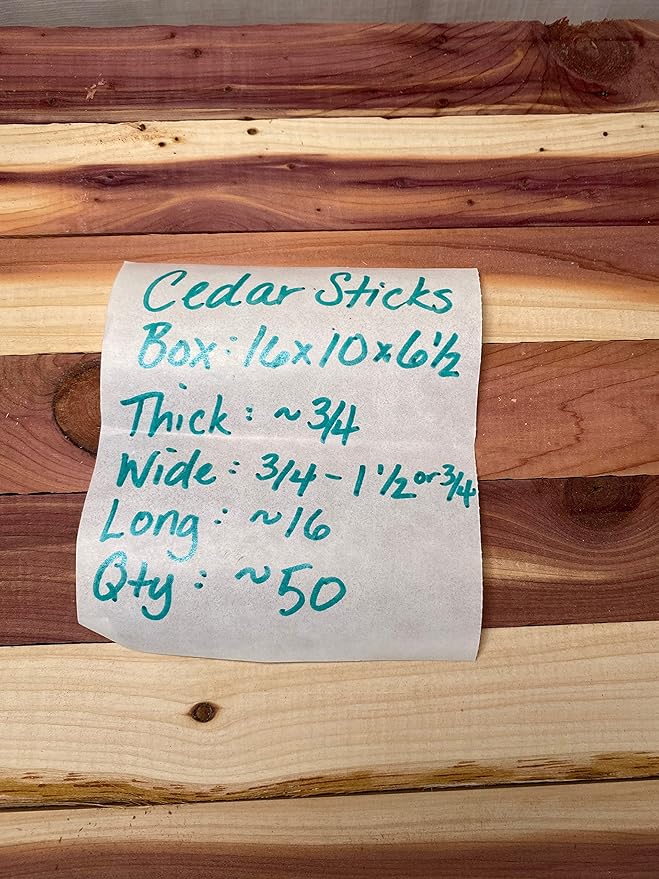 Cedar Sticks
Box: 16x10x6½
Thick: ~3/4
Wide: 3/4 - 1 1/2 or 3/4
Long: ~16
Qty: ~50